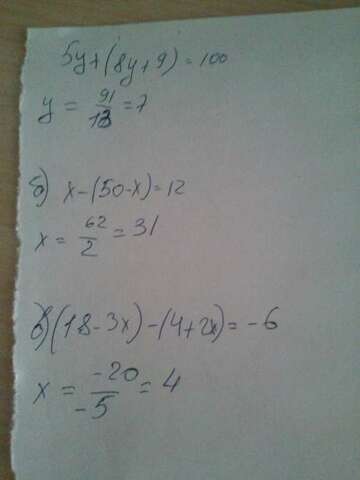 5y+(8y+9)=100
y = 91/13 = 7
б) x-(50-x)=12
x = 62/2 = 31
в) (18-3x)-(4+2x)=-6
x = -20/-5 = 4